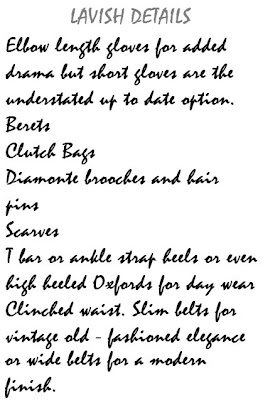 LAVISH DETAILS
Elbow length gloves for added
drama but short gloves are the
understated up to date option.
Berets
Clutch Bags
Diamonte brooches and hair
pins
Scarves
T bar or ankle strap heels or even
high heeled Oxfords for day wear
Clinched waist. Slim belts for
vintage old - fashioned elegance
or wide belts for a modern
finish.